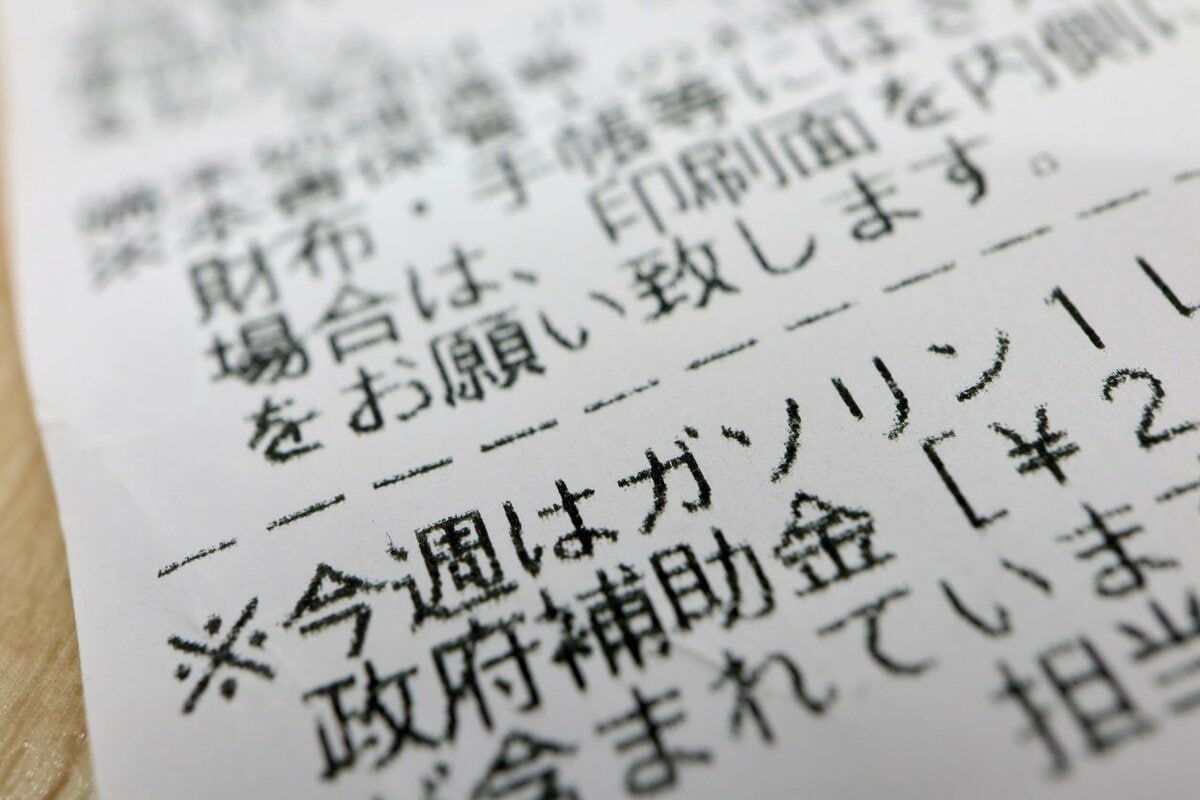 ※本書
財布・手帳等には
場合は、印刷面を内側に
をお願い致します。
※今週はガソリン1L
政府補助金[¥2
が含まれていま
担当